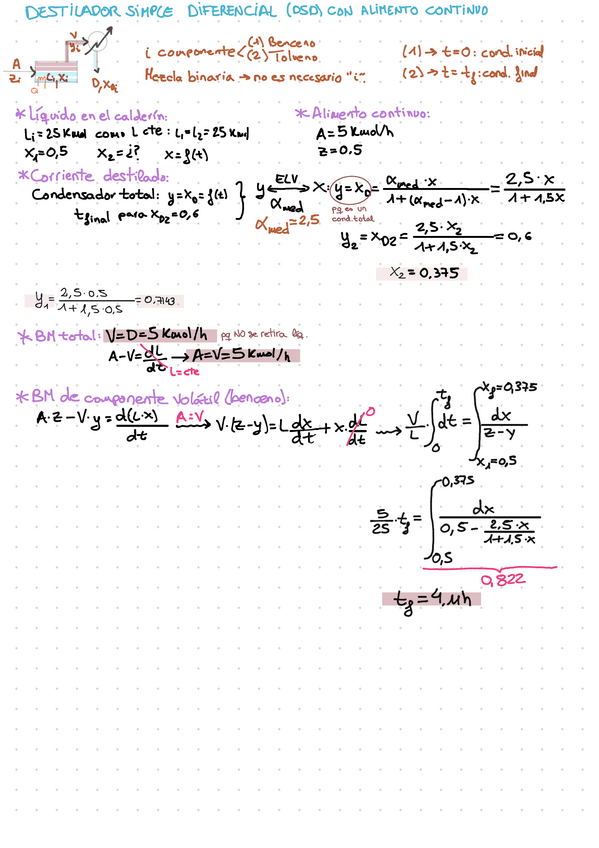 DESTILADOR SIMPLE DIFERENCIAL (DSD) CON ALIMENTO CONTINUO
V
yi
A
zi
m Li, xi
Q
D, xDi
i componente < (1) Benceno
(2) Tolueno
Mezcla binaria → no es necesario "i".
(1) → t=0: cond. inicial
(2) → t=tf: cond. final
* Líquido en el calderín:
Li = 25 Kmol como L cte: L1=L2=25 Kmol
x1=0,5 x2=¿? x=f(t)
* Alimento continuo:
A=5 Kmol/h
z=0.5
* Corriente destilado:
Condensador total: y=xD=f(t)
tfinal para xD2=0,6
y ←ELV→ x: y=xD = αmed·x / 1+(αmed-1)·x = 2,5·x / 1+1,5x
αmed
αmed=2,5
pq es un
cond. total
y2=xD2= 2,5·x2 / 1+1,5·x2 = 0,6
x2 = 0,375
y1 = 2,5·0.5 / 1+1,5·0,5 = 0,7143
* BM total: V=D=5 Kmol/h pq NO se retira liq.
A-V= dL/dt → A=V=5 Kmol/h
L=cte
* BM de componente volátil (benceno):
A·z-V·y = d(L·x)/dt A=V ⟿ V·(z-y)=L dx/dt + x·dL/dt 0 ⟿ V/L · ∫0^tf dt = ∫x1=0,5^xf=0,375 dx / z-y
5/25 · tf = ∫0,5^0,375 dx / 0,5 - 2,5·x / 1+1,5·x
0,822
tf = 4,11h